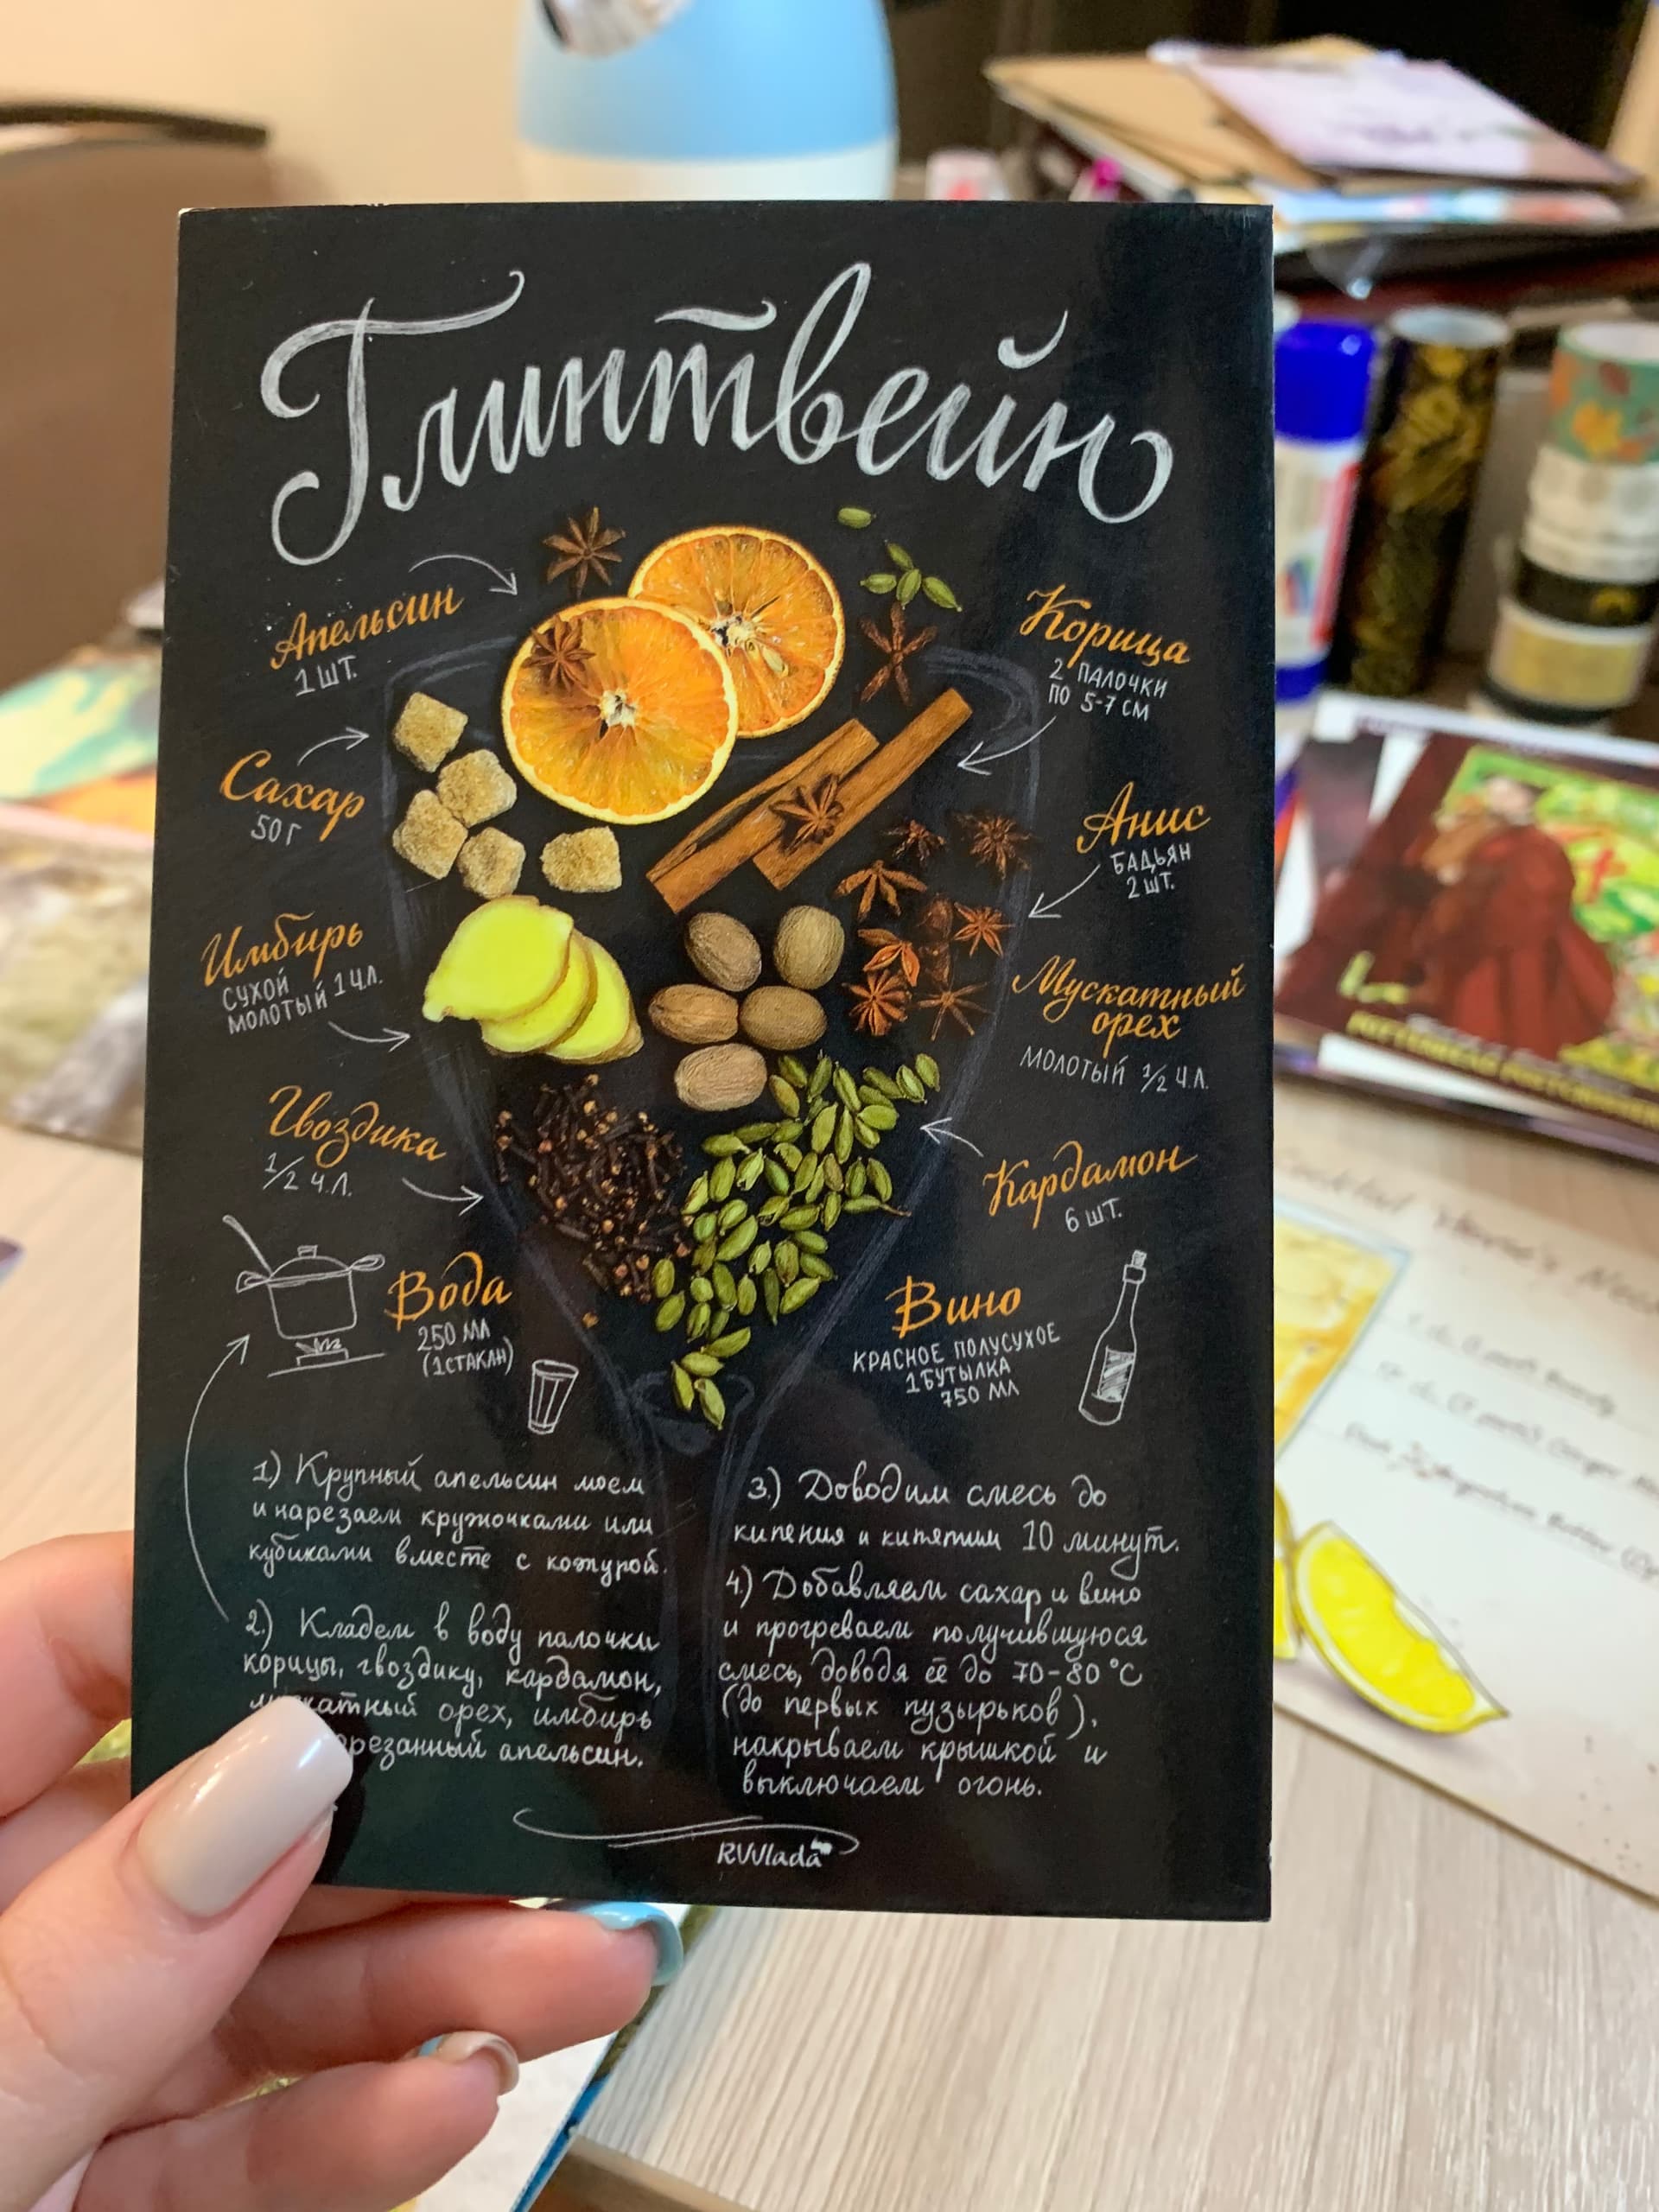 Глинтвейн
Апельсин
1 ШТ.
Сахар
50 Г
Имбирь
СУХОЙ
МОЛОТЫЙ 1 Ч.Л.
Гвоздика
1/2 Ч.Л.
Вода
250 МЛ
(1 СТАКАН)
Корица
2 ПАЛОЧКИ
ПО 5-7 СМ
Анис
БАДЬЯН
2 ШТ.
Мускатный
орех
МОЛОТЫЙ 1/2 Ч.Л.
Кардамон
6 ШТ.
Вино
КРАСНОЕ ПОЛУСУХОЕ
1 БУТЫЛКА
750 МЛ
1) Крупный апельсин моем
и нарезаем кружочками или
кубиками вместе с кожурой.
2.) Кладем в воду палочки
корицы, гвоздику, кардамон,
орех, имбирь
апельсин.
3.) Доводим смесь до
кипения и кипятим 10 минут.
4.) Добавляем сахар и вино
и прогреваем получившуюся
смесь, доводя её до 70-80°С
(до первых пузырьков),
накрываем крышкой и
выключаем огонь.
RVVlada
Cocktail